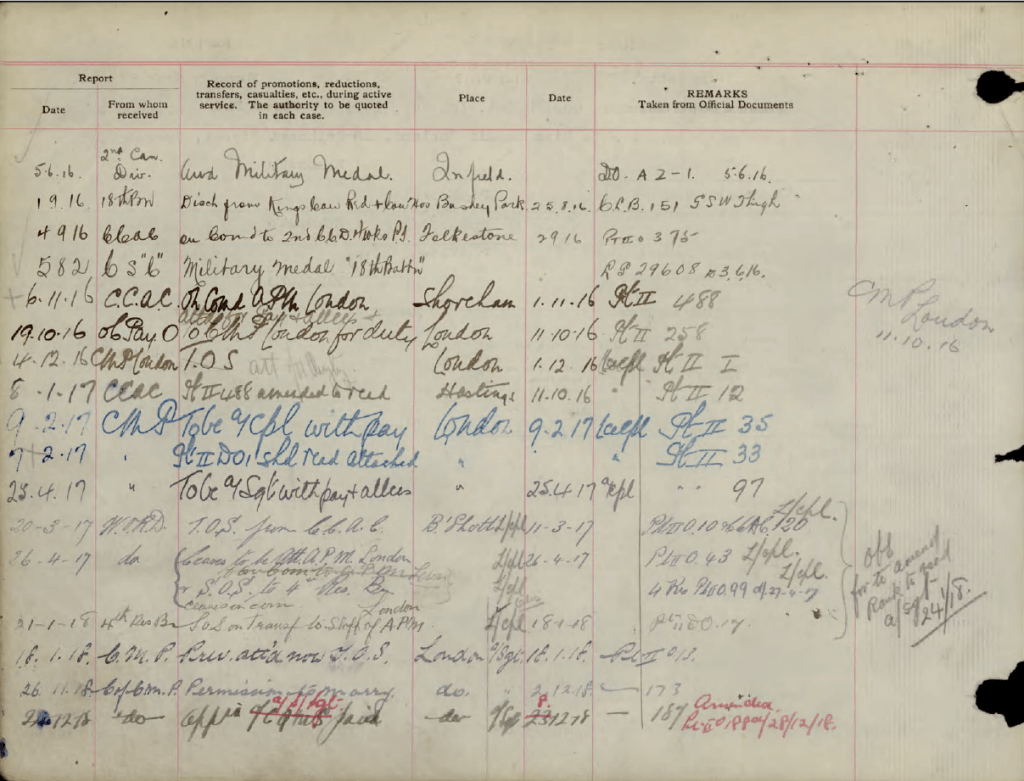 Report
Record of promotions, reductions,
transfers, casualties, etc., during active
service. The authority to be quoted
in each case.
Place
Date
REMARKS
Taken from Official Documents
Date
From whom
received
5.6.16. 2nd Can. Div. Awd Military Medal. Infield. DO. A 2-1. 5.6.16.
1 9.16 18th Bn Disch from Kings Can Rd + Con Hos Bushey Park 25.8.16 C.L.B. 151 GSW Thigh
4 9 16 CCAC on Comd to 2nd C.C.D. Folkestone 2 9 16 Pt II o 375
582 C S "C" Military Medal "18th Battn" 29608 3.6.16.
+6.11.16 C.C.A.C. On Comd A.P.M. London Shoreham 1.11.16 Pt II 488
attached Pay + allces +
19.10.16 Pay O To CMP London for duty London 11.10.16 Pt II 258
CMP
London
11.10.16
4.12.16 CMP London T.O.S London 1.12.16 Pt II I
att
8.1.17 CCAC Pt II 488 amended to read Hastings 11.10.16 " Pt II 12
9.2.17 CMP To be a/Cpl with pay London 9.2.17 Pt II 35
7+2.17 " Pt II DO 1 shd read attached " " Pt II 33
25.4.17 " To be a/Sgt with pay + allces " 25.4.17 a/Cpl " " 97
20-3-17 T.O.S. from C.C.A.C. B'Shott L/Cpl 11-3-17 120 L/cpl.
26-4-17 do Ceases to be Att. A.P.M. London L/Cpl 26-4-17 Pt II O.43 L/cpl.
+ S.O.S. to 4th Res. Bn L/Cpl 4 Res Pt II O.99 d/27-4-17 L/cpl.
London
21-1-18 4th Res Bn S.O.S on Transf to Staff of A.P.M. L/Cpl 18-1-18 Pt II DO.17.
for to amend
Rank to read
a/Sgt
24/1/18.
18.1.18. C.M.P. Prev. att'd now T.O.S. London a/Sgt. 18.1.18. Pt II O 13.
26.11.18 C of C.M.P. Permission to marry. do. " 2.12.18. — 173
a/S/Sgt
12 18 —do— App'td paid —do— a/Sgt 8. 12 18 — 187 Amended
Pt II O 188 d/28/12/18.